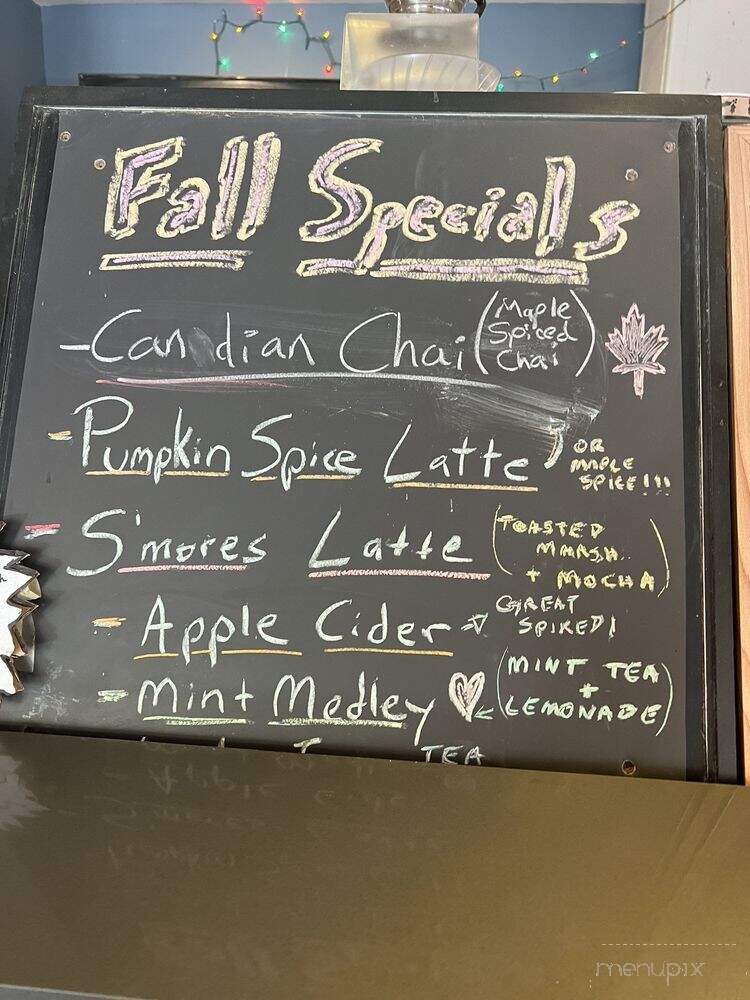 Fall Specials
- Candian Chai (Maple Spiced Chai)
- Pumpkin Spice Latte, OR MAPLE SPICE!!!
- S'mores Latte (TOASTED MMASH. + MOCHA)
- Apple Cider → GREAT SPIKED!
- Mint Medley (MINT TEA + LEMONADE)
TEA
menupix